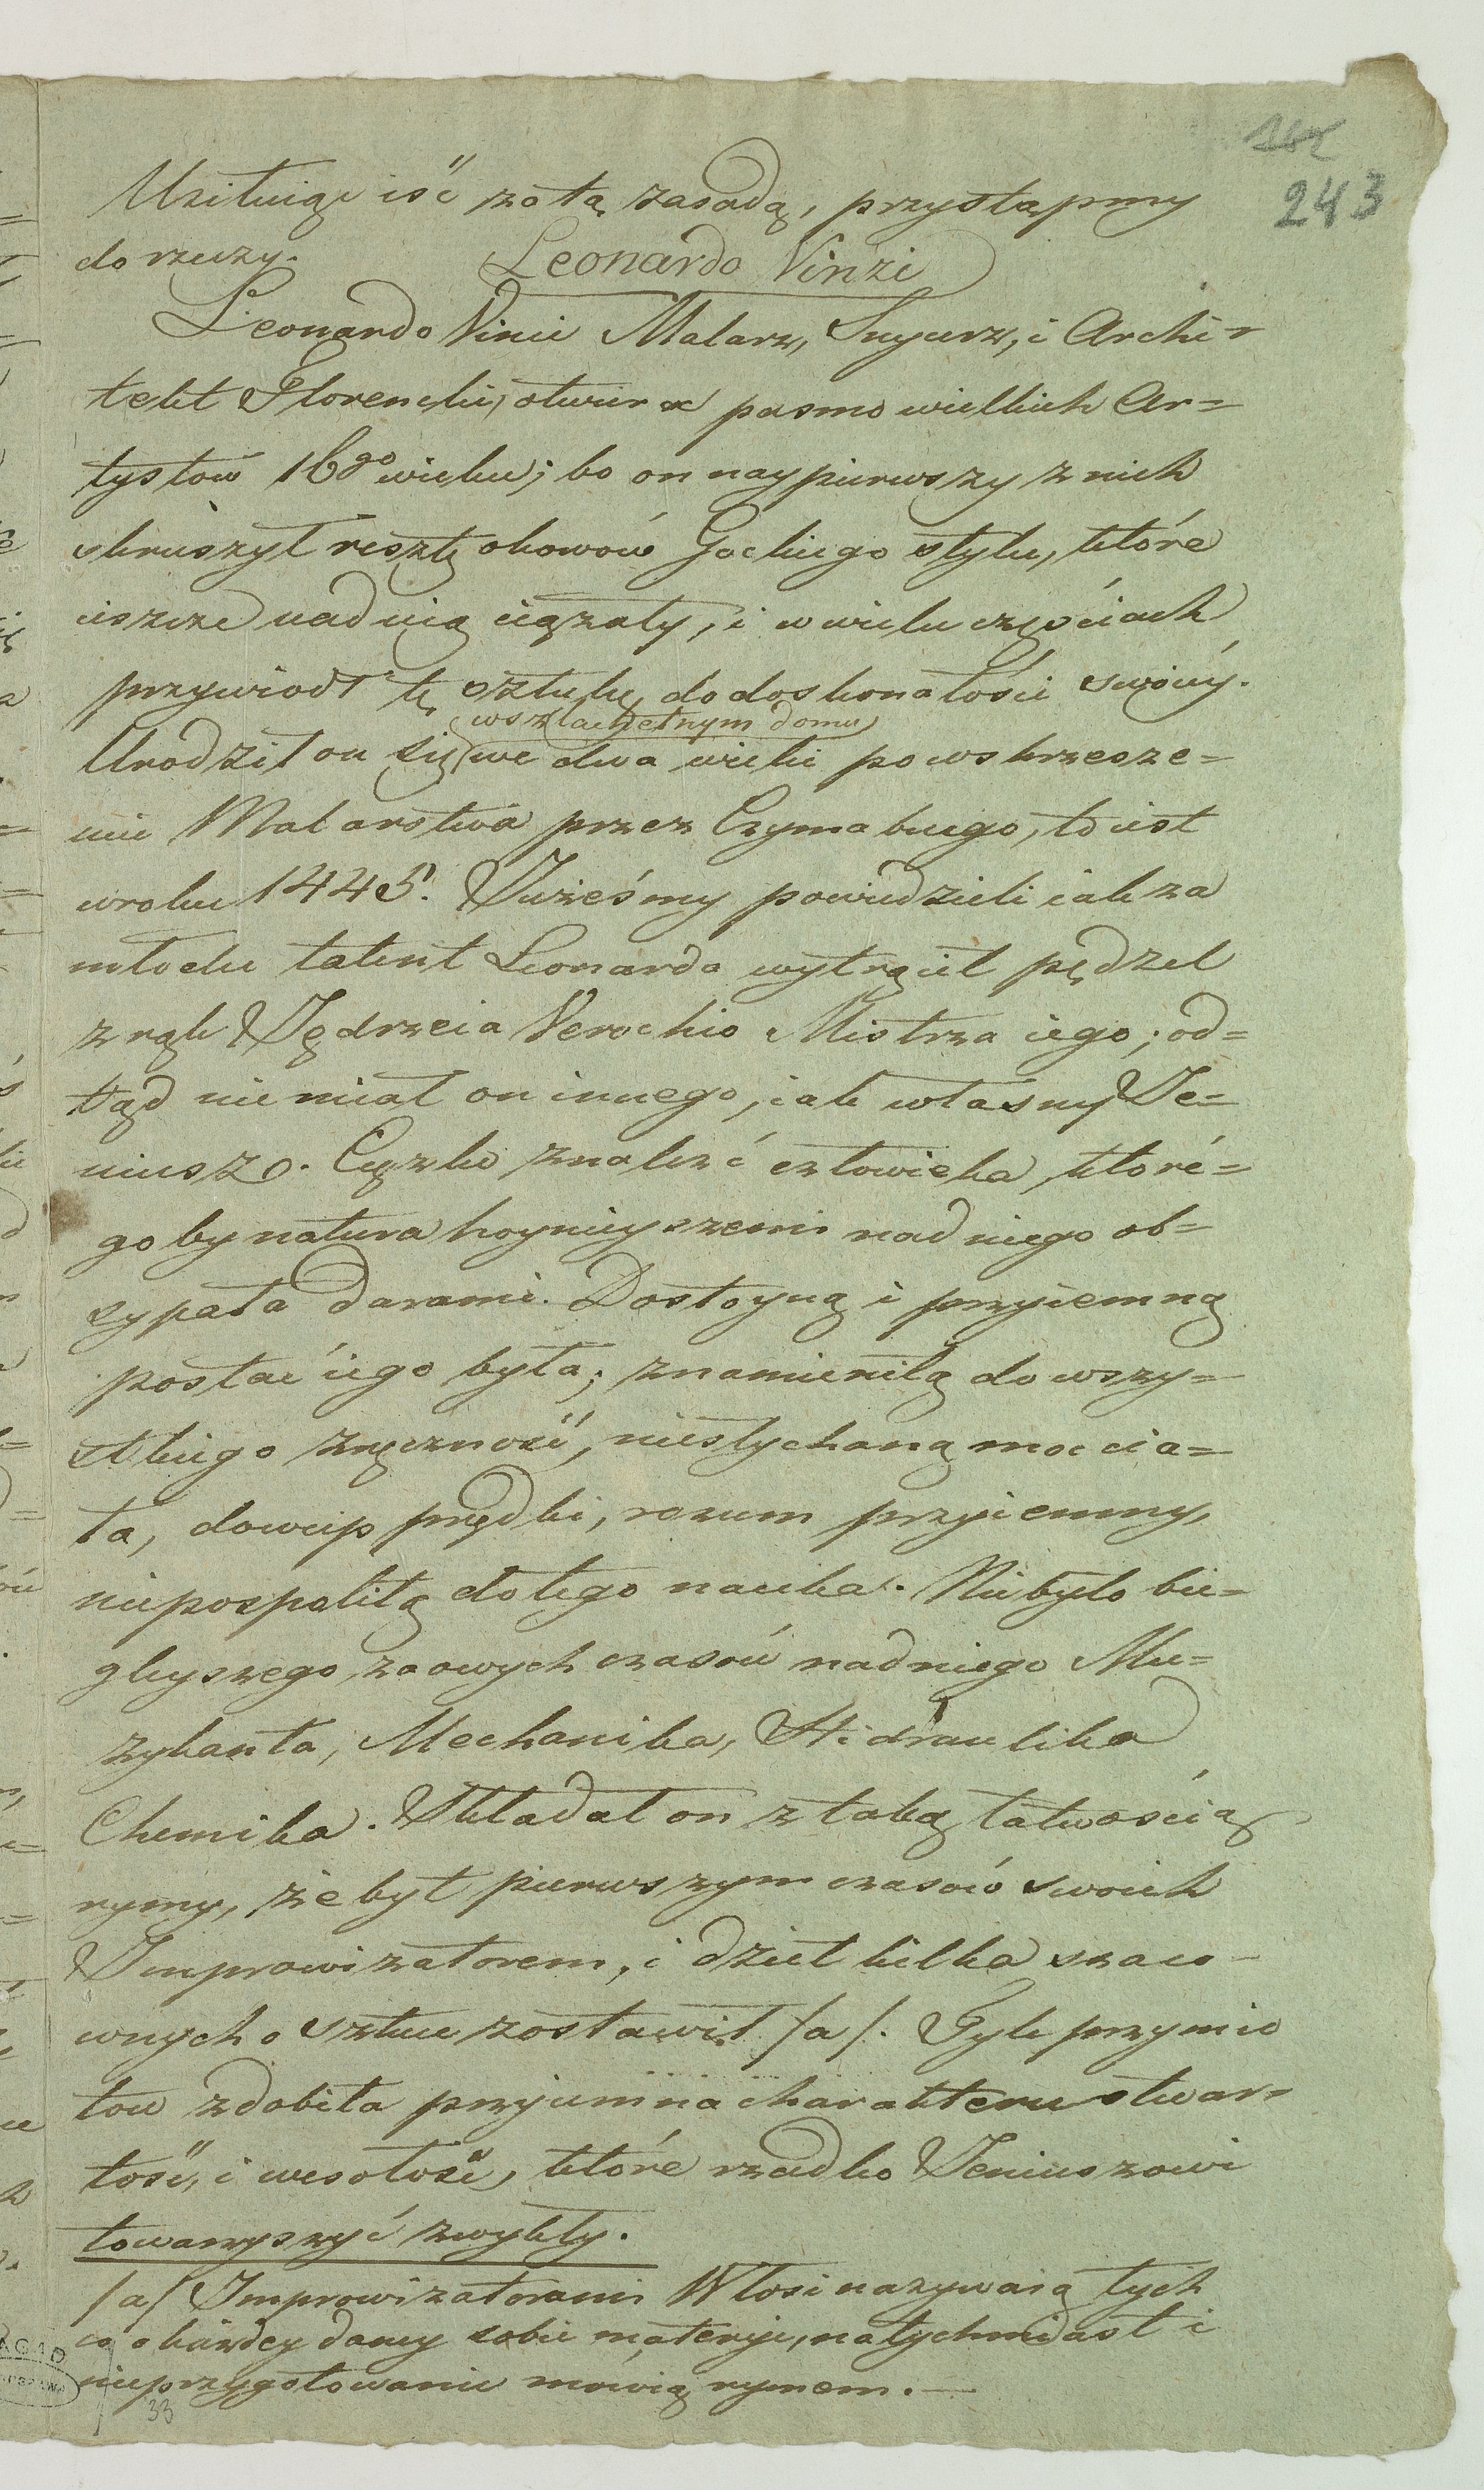 182
243
Usiłuiąc iść za tą zasadą, przystąpmy
do rzeczy.
Leonardo Vinzi
Leonardo Vinci Malarz, Snycerz, i Archi-
tekt Florencki, otwiera pasmo wielkich Ar=
tystów 16go wieku; bo on naypierwszy z nich
skruszył resztę okowów Gockiego stylu, które
ieszcze nad nią ciążały, i w wielu częściach
przywiodł tę sztukę do doskonałości swoiéy.
w szlachetnym domu
Urodził on się we dwa wieki po wskrzesze=
nie Malarstwa przez Czymabuego, to iest
w roku 1445. Jużeśmy powiedzieli iak za
młodu talent Leonarda wytrącił pędzel
z rąk Jędrzeia Verochio Mistrza iego; od=
tąd nie miał on innego, iak własny Je=
niusz. Ciężko znaleźć człowieka, któré=
go by natura hoynieyszemi nad niego ob=
sypała darami. Dostoyną i przyiemną
postać iego była; znamienitą do wszy=
stkiego zręczność, niesłychaną moc cia=
ła, dowcip prędki, rozum przyiemny,
niepospolitą do tego nauka. Nie było bie=
gleyszego za owych czasów nad niego Mu=
zykanta, Mechanika, Hidraulika
Chemika. Składał on z taką łatwością
rymy, że był pierwszym czasów swoich
Improwizatorem, i dzieł kilka szaco-
wnych o sztuce zostawił /a/. Tyle przymio
tow zdobiła przyiemna charakteru otwar=
tość, i wesołość, które rzadko Jeniuszowi
towarzyszyć zwykły.
/a/ Improwizatorami Włosi nazywaią tych
co o każdey daney sobie materyi, natychmiast i
nieprzygotowanie mówią rymem.—
33